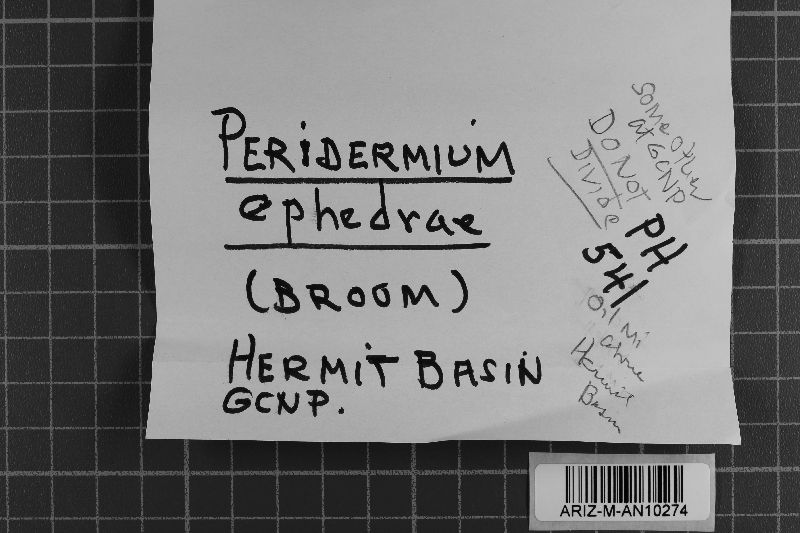 PERIDERMIUM
ephedrae
(BROOM)
HERMIT BASIN
GCNP.
Some other
at GCNP
DO NOT
Divide
PH
541
0.1 mi
above
Hermit
Basin
ARIZ-M-AN10274